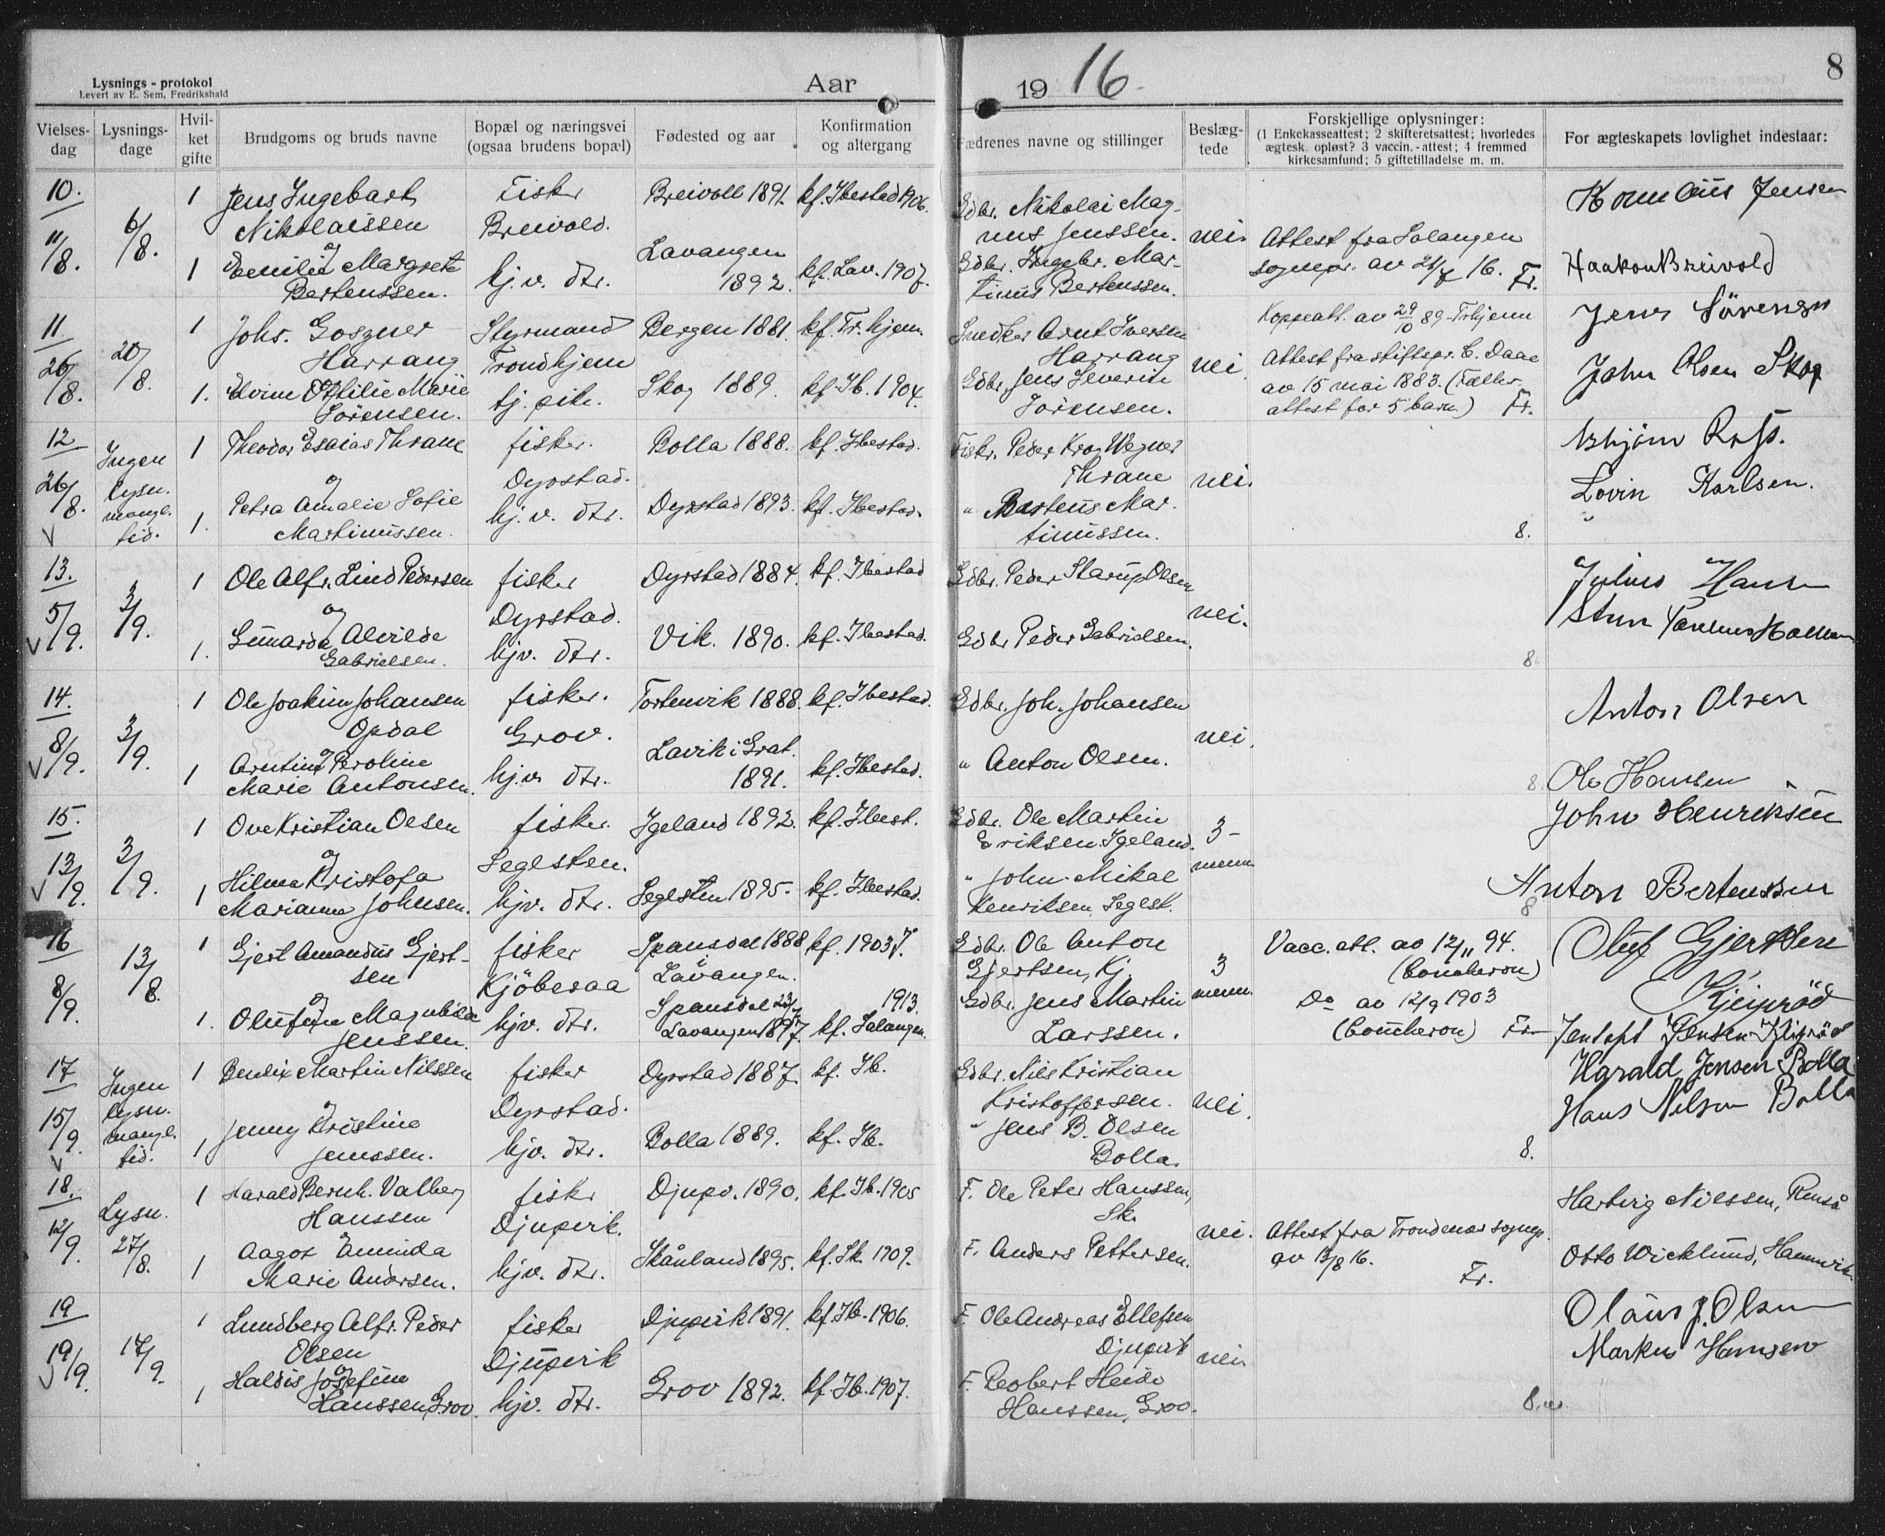 Lysnings - protokol
Levert av E. Sem, Fredrikshald
Aar
1916.
8
Vielses-dag
Lysnings-dage
Hvil-ket gifte
Brudgoms og bruds navne
Bopæl og næringsvei (ogsaa brudens bopæl)
Fødested og aar
Konfirmation og altergang
Fædrenes navne og stillinger
Beslæg-tede
Forskjellige oplysninger:
(1 Enkekasseattest; 2 skifteretsattest; hvorledes ægtesk. opløst? 3 vaccin.-attest; 4 fremmed kirkesamfund; 5 giftetilladelse m. m.
For ægteskapets lovlighet indestaar:
10.
11/8.
6/8.
1
Jens Ingebart
Nikolaissen
og
1
Emilie Margrete
Bertenssen.
Fisker
Breivold.
hj.v. dtr.
Breivoll 1891.
Lavangen
1892.
kf. Ibestad 1906.
kf. Lav. 1907.
Gdbr. Nikolai Mag-
nus Jenssen.
Gdbr. Ingebr. Mar-
tinus Bertenssen.
nei.
Attest fra Salangen
sognepr. av 21/7 16. Fr.
Jensen
Haakon Breivold
11
26/8.
20/8.
1
Johs. Goszner
Harrang
1.
Ottilie Marie
Sørensen.
Styrmand
Trondhjem
tj. pike.
Bergen 1881.
Skog 1889.
kf. Tr.hjem.
kf. Ib. 1904.
Snedker Arnt Iversen
Harrang
Gdbr. Jens Severin
Sørensen.
nei.
Koppeatt. av 29/10 89 - Trhjem
Attest fra stiftspr. C. Daae
av 15 mai 1883. (Fælles-
attest for 5 barn) Fr.
Jens Sörensen
John Olsen Skog
12
26/8.
V
Ingen
lysn.
mangl.
tid.
1
Theodor Esaias Thrane
og
1.
Petra Amalie Sofie
Martinussen.
fisker.
Dyrstad.
hj. v. dtr.
Bolla 1888.
Dyrstad 1893.
kf. Ibestad.
kf. Ibestad.
Fisker. Peder Krog Wegner
Thrane
" Marteus Mar-
tinussen.
nei.
8.
Lovin Karlsen.
"
13.
5/9.
V
3/9.
1
Ole Alfr. Lind Pedersen
og
1.
Gunarda Alvilde
Gabrielsen.
fisker
Dyrstad.
hjv. dtr.
Dyrstad 1884.
Vik. 1890.
kf. Ibestad
kf. Ibestad.
Gdbr. Peder Starup Olsen
Gdbr Peder Gabrielsen.
nei.
8.
Julius Hansen
14.
8/9.
V
3/9.
1
Ole Joakim Johansen
Opdal
og
1
Arntine Peroline
Marie Antonsen.
fisker.
Grov.
hj.v. dtr.
Tortenvik 1888.
Lavik i Grat.
1891.
kf. Ibestad.
kf. Ibestad.
Gdbr. Joh. Johansen
" Anton Olsen.
nei.
8.
Anton Olsen
Ole Hansen
15.
13/9.
V
3/9.
1
Ove Kristian Olsen
og
1
Hilma Kristofa
Marianne Johnsen.
fisker.
Segelsten.
hjv. dtr.
Igeland 1892.
Segelsten 1895.
kf. Ibest.
kf. Ibestad.
Gdbr. Ole Martin
Eriksen Igeland.
" John Mikal
Henriksen, Segelst.
3-
menn.
8
John Henriksen
Anton Bertenssen
16
8/9.
13/8.
1
Gjert Amandus Gjert-
sen
og
1.
Olufine Magnhilde
Jenssen.
fisker
Kjöberaa
hjv. dtr.
Spansdal 1888
i
Lavangen.
Spansdal 23/7
Lavangen 1897.
kf. 1903 I.
1913
kf. Salangen.
Gdbr. Ole Anton
Gjertsen, Kj.
Gdbr. Jens Martin
Larssen.
3
menn.
Vacc. att. av 12/11 94.
(Boucheron)
Do av 12/9 1903
(Boucheron) Fr.
Oluf Gjertsen
Jensen
17
15/9.
V
Ingen
lysn.
mangl.
tid.
1
Bendix Martin Nilssen
og
1
Jenny Kristine
Jenssen.
fisker
Dyrstad.
hjv. dtr.
Dyrstad 1887.
Bolla 1889.
kf. Ib.
kf. Ib.
Gdbr. Nils Kristian
Kristoffersen.
" Jens B. Olsen
Bolla.
nei.
8.
Harald Jensen Bolla
Hans Nilsen Bolla
18.
12/9.
Lysn.
27/8.
1
Harald Bernh. Valberg
Hanssen
1
Aagot Eminda
Marie Andersen.
fisker
Djupvik.
hjv. dtr.
Djupv. 1890.
Skånland 1895.
kf. Ib. 1905
kf. Sk. 1909.
F. Ole Peter Hanssen,
Sk.
F. Anders Pettersen.
nei.
Attest fra Trondenes sognep.
av 13/8 16.
Fr.
Hartvig Nilssen, Renså
Otto Wicklund, Hamnvik.
19
19/9.
V
17/9.
1
Lundberg Alfr. Peder
Olsen
og
1
Haldis Josefine
Hanssen, Grov.
fisker
Djupvik
hjv. dtr.
Djupvik 1891.
Grov 1892.
kf. Ib. 1906.
kf. Ib. 1907.
F. Ole Andreas Ellefsen
Djupvik
F. Peobert Heide
Hanssen, Grov.
nei
8.
Olaus J. Olsen
Markus Hansen